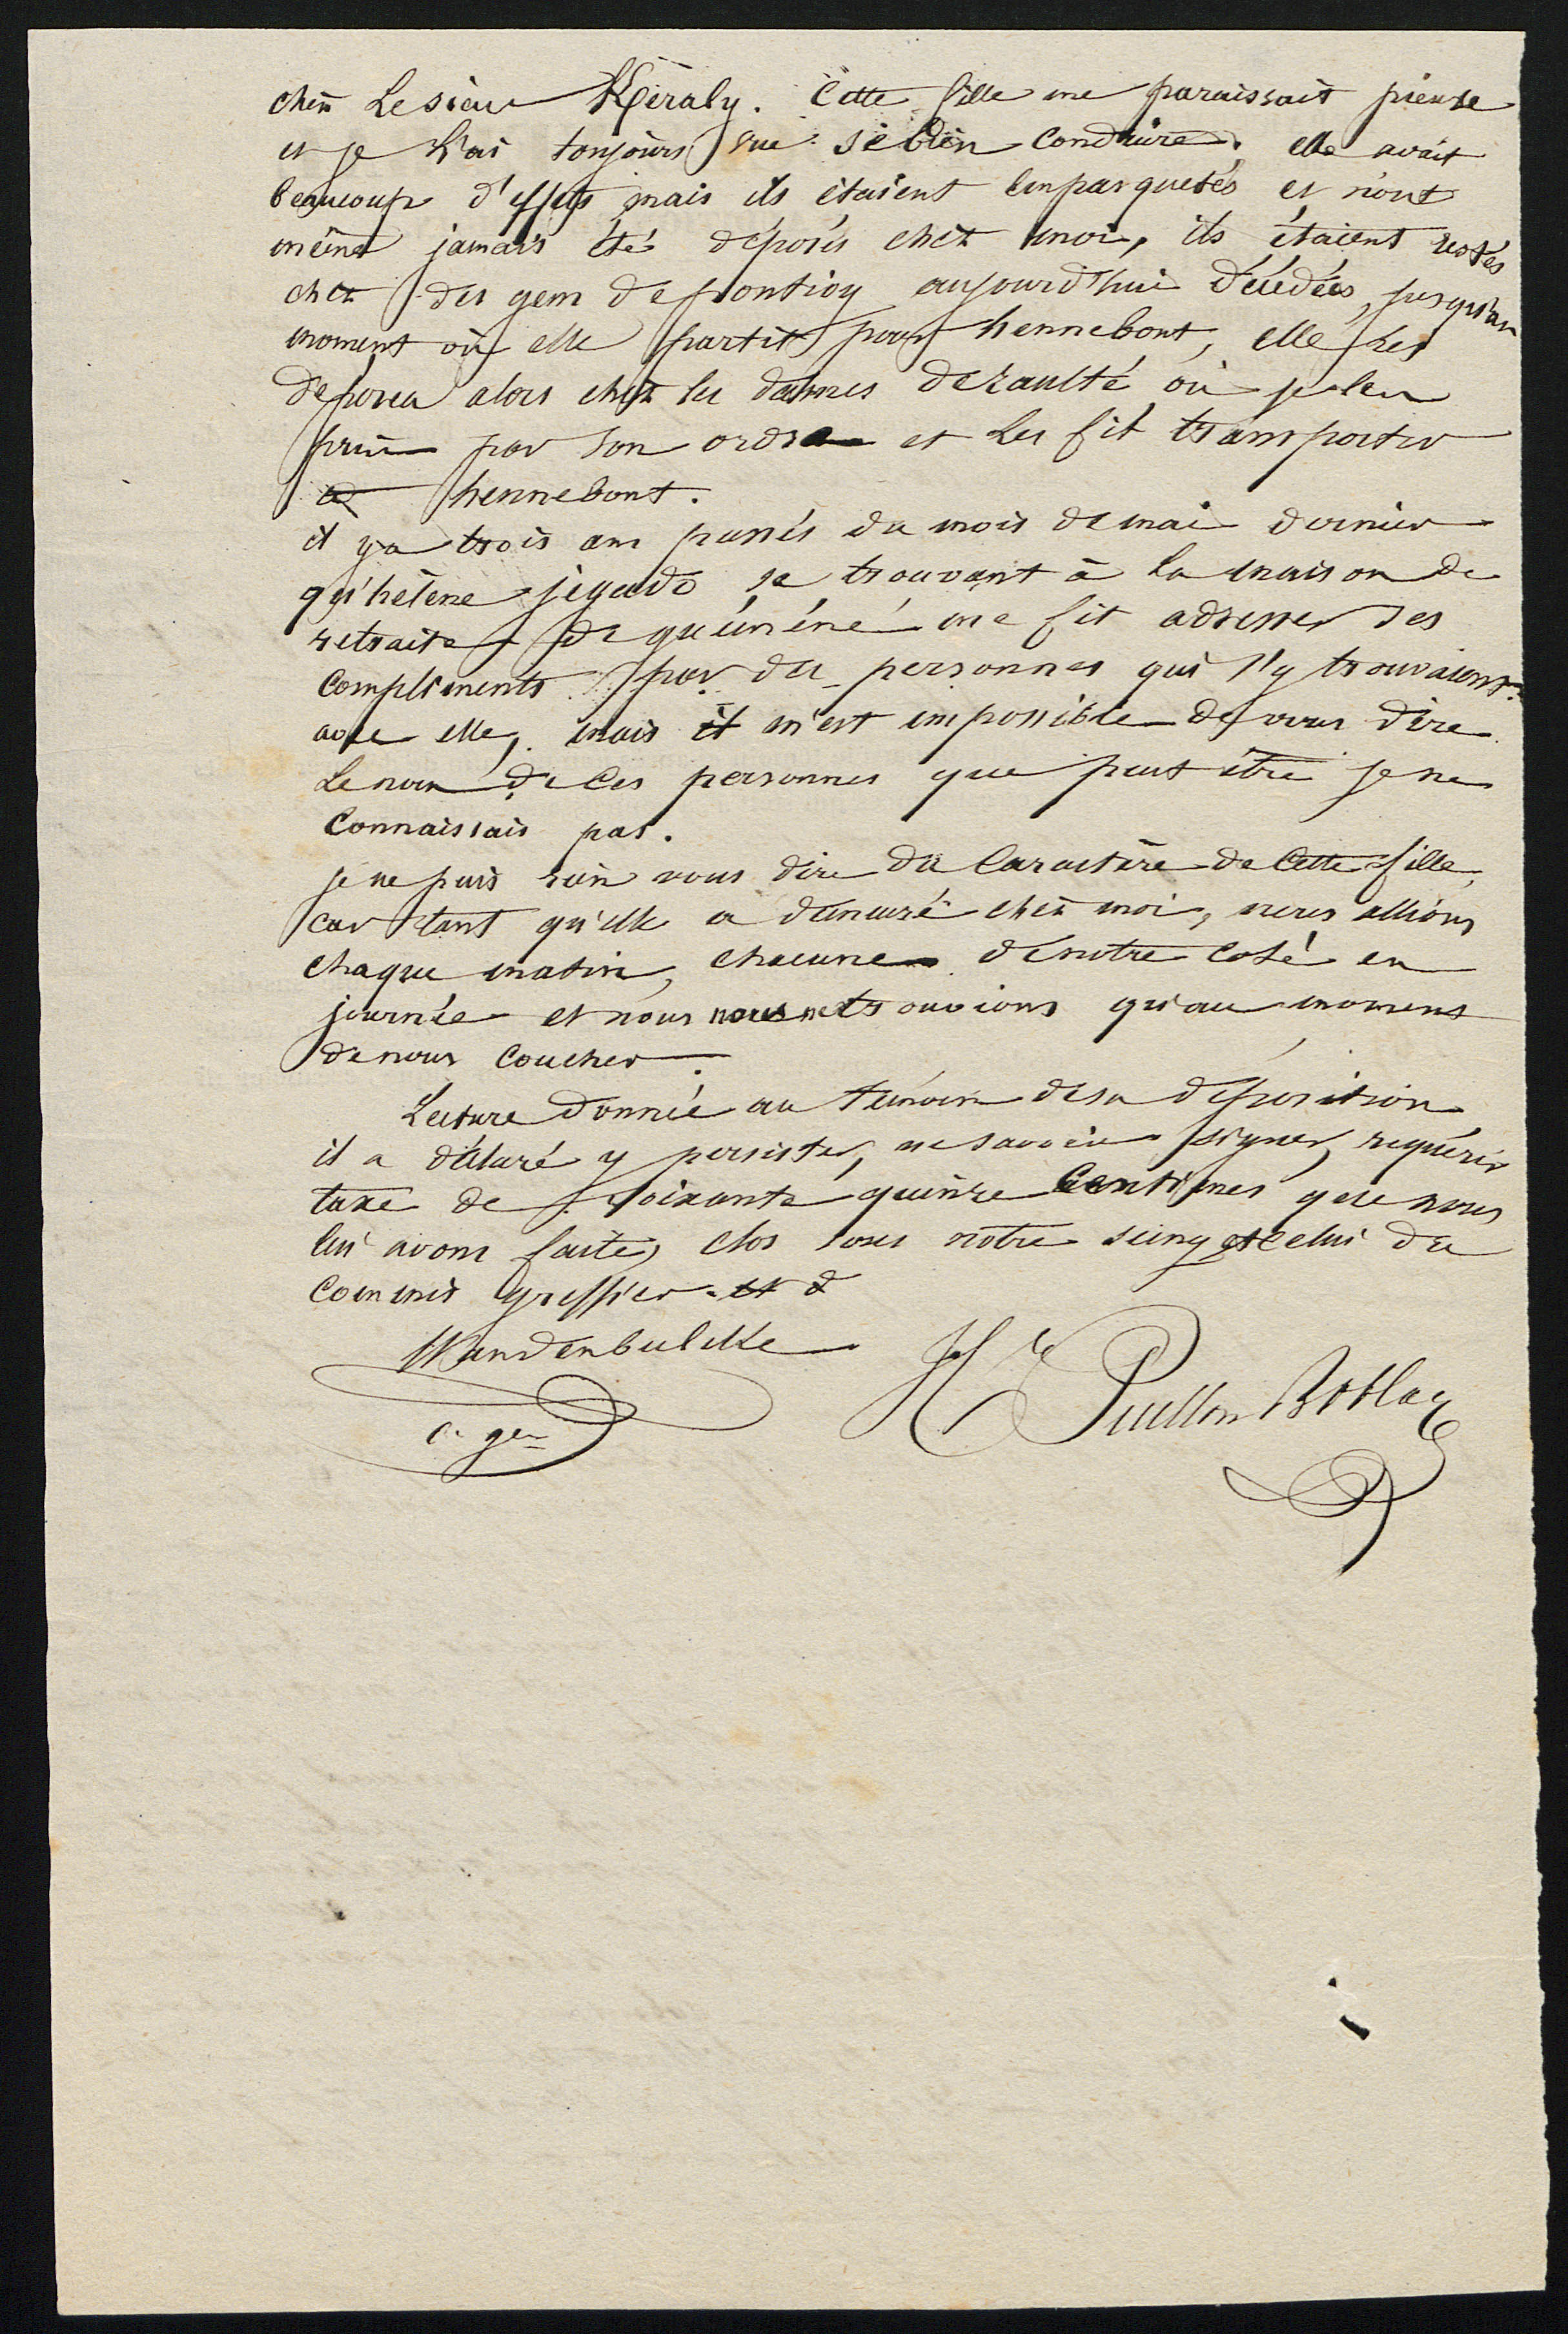 chez Le sieur Kéraly. Cette fille me paraissait pieuse
et je l'ai toujours vue se bien conduire. elle avait
beaucoup d'effets mais ils étaient empaquetés et n'ont
même jamais été déposés chez moi, ils étaient restés
chez des gens de pontivy aujourd'hui décédées, jusqu'au
moment où elle partit pour hennebont, elle les
déposa alors chez les dames où je les
pris par son ordre et les fit transporter
à hennebont.
il y a trois ans passés du mois de mai dernier
qu'hélène jégado se trouvant à la maison de
retraite de guéméné me fit adresser ses
compliments par des personnes qui s'y trouvaient
avec elle, mais il m'est impossible de vous dire
Le nom de ces personnes que peut être je ne
connaissais pas.
je ne puis rien vous dire du caractère de cette fille,
car tant qu'elle a demeuré chez moi, nous allions
chaque matin, chacune de notre coté en
journée et nous nous ne trouvions qu'au moment
de nous coucher.
Lecture donnée au témoin de sa déposition
il a déclaré y persister, ne savoir signer, requérir
taxe de soixante quinze centimes que nous
lui avons faite, clos sous notre seing et celui du
commis greffier. et d
Vandenbulcke
c. ger
H te Puillon Boblay